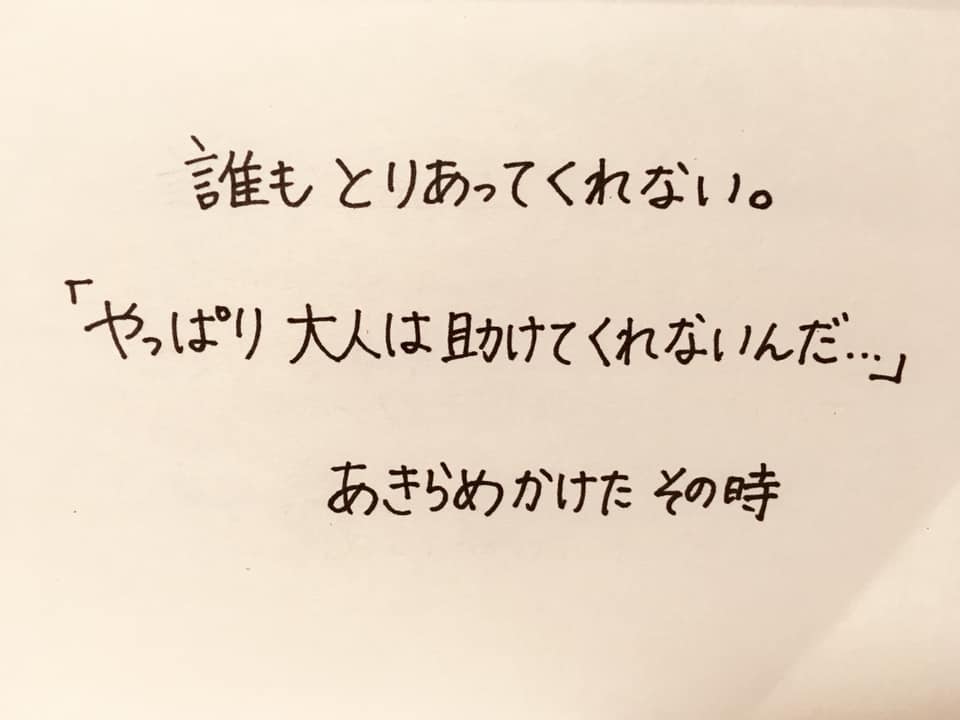 誰も とりあってくれない。
「やっぱり 大人は 助けてくれないんだ…」
あきらめかけた その時